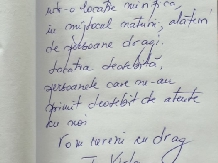 într-o locație minunată,
în mijlocul naturii, alături
de persoane dragi.
Locația deosebită,
persoanele care ne-au
primit deosebit de atente
cu noi
Vom reveni cu drag